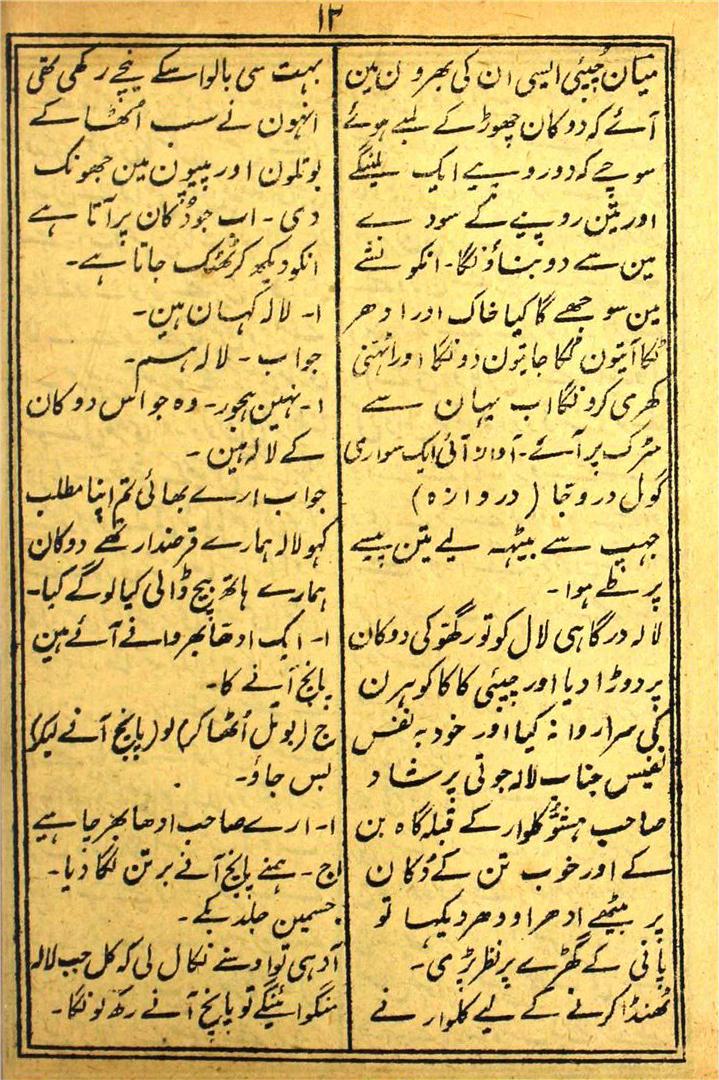 ۱۲
میان چپئی ایسی ان کی بھرون مین
آئے کہ دوکان چھوڑ کے لمبے ہوئے
سوچے کہ دو روپے ایک لینگے
اور تین روپیے کے سودے
مین سے دو بناؤنگا۔ انکو نشے
مین سوجھے گا کیا خاک اور ادھر
ٹکا آیتون ٹکا جایتون دونگا اور اٹھنی
کھری کرونگا اب یہان سے
سڑک پر آئے۔ آواز آئی ایک سواری
گول دروجا (دروازہ)
جھپ سے بیٹھہ لیے تین پیسے
پر طے ہوا۔
لالہ درگاہی لال کو تو رگھو کی دوکان
پر دوڑا دیا اور چپئی کاکا کو ہرن
کی سرا روانہ کیا اور خود بہ نفس
نفیس جناب لالہ جوتی پرشاد
صاحب کلوار کے قبلہ گاہ بن
کے اور خوب تن کے دُکان
پر بیٹھے ادھر اودھر دیکہا تو
پانی کے گھڑے پر نظر پڑی۔
ٹھنڈا کرنے کے لیے کلوار نے
بہت سی بالو اسکے نیچے رکھی تھی
انہون نے سب اُٹھا کے
بوتلون اور پیپون مین جھونک
دی۔ اب جو دُکان پر آتا ہے
انکو دیکھ کر ٹھٹک جاتا ہے۔
ا۔ لالہ کہان ہین۔
جواب۔ لالہ ہم۔
ا۔ نہین ہجور۔ وہ جو اس دوکان
کے لالہ ہین۔
جواب ارے بھائی تم اپنا مطلب
کہو لالہ ہمارے قرضدار تھے دوکان
ہمارے ہاتھ بیچ ڈالی کیا لوگے کیا۔
ا۔ ایک ادھا بھروانے آئے ہین
پانچ آنے کا۔
ج (بوتل اُٹھا کر) لو (پانچ آنے لیکر)
بس جاؤ۔
ا۔ ارے صاحب ادھا بھر چاہیے
ج۔ ہمنے پانچ آنے برتن لگا دیا۔
جسمین جلد بکے۔
آدہی تو اوسنے نکال لی کہ کل جب لالہ
منگوائینگے تو پانچ آنے رکھ لونگا۔